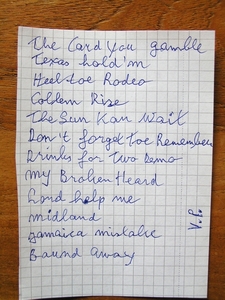 The Card You gamble
Texas hold'm
Heel toe Rodeo
Goldem Rise
The Sun Kan Wait
Don't forget toe Remember
Drinks for Two Demo
My Broken Heard
Lord help me
midland
Jamaica mistake
Bound away
V.P.